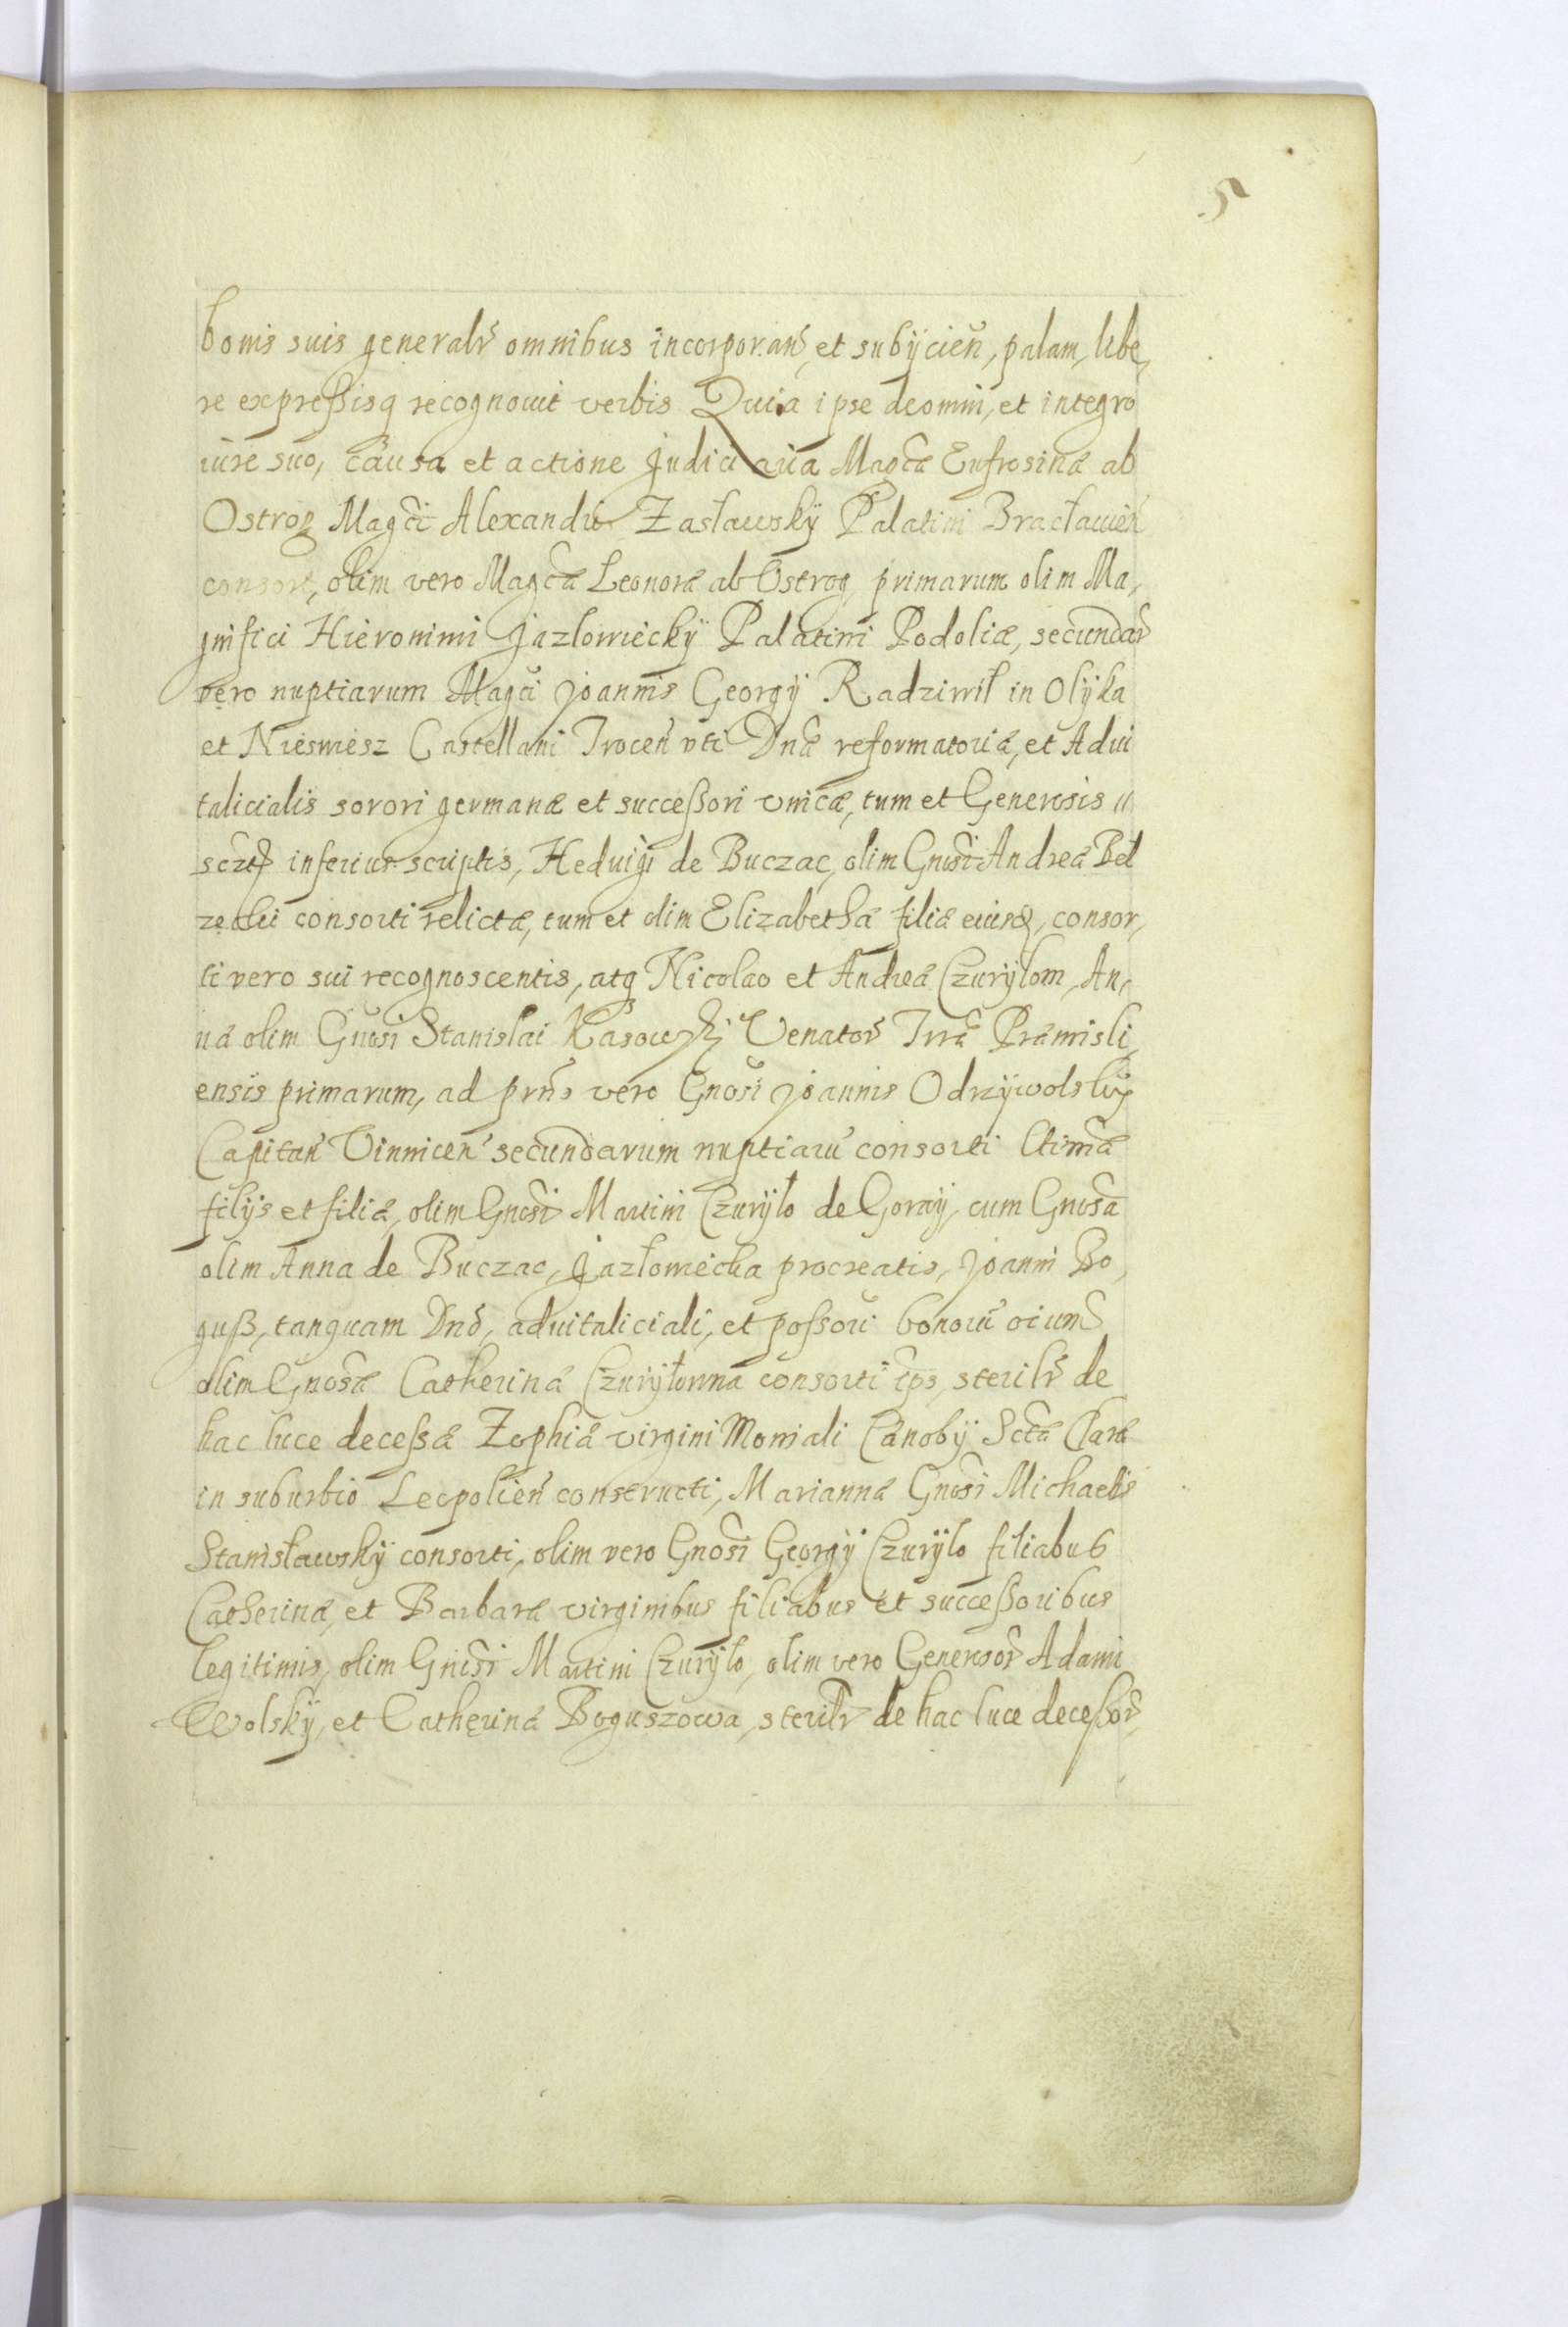 5
bonis suis generalr̃ omnibus incorporañ, et subÿcieñ, palam, libe,
re expreßisq recognovit verbis Quia ipse deomni, et integro
iure suo, causa et actione Judici aria Magcæ Eufrosinæ ab
Ostrog Magci Alexandri Zasławskÿ Palatini Bracłavien
consort, olim vero Magcæ Leonoræ ab Ostrog, primarum olim Ma,
gnifici Hieronimi Jazlowieckÿ Palatini Podoliæ, secundar
vero nuptiarum Magci Joannis Georgÿ Radziwił in Olÿka
et Nieswiesz Castellani Troceñ vti Dnæ reformatoriæ, et Advi
talicialis sorori germanæ et succeßori vnicæ, tum et Generosis
inferius scriptis, Hedvigi de Buczac, olim Gnosi Andreæ Beł
zecki consorti relictæ, tum et olim Elizabethæ filiæ eiusd, consor,
ti vero sui recognoscentis, atq Nicolao et Andreæ Czurÿlom, An,
næ olim Gnosi Stanislai Kasowski Venator Trræ Præmisli,
ensis primarum, ad prñs vero Gnosi Joannis Odrzÿwolskÿ
Capitañ Vinniceñ secundarum nuptiarũ consorti
filÿs et filiæ, olim Gnosi Martini Czurÿlo de Goraÿ, cum Gnosa
olim Anna de Buczac, Jazłowiecka procreatis, Joanni Bo,
guß, tanquam Dnõ, advitaliciali, et poßori bonorũ oium
olim Gnosæ Catherinæ Czurÿłowna consorti ips, sterilr̃ de
hac luce deceßæ Zophiæ virgini Moniali Cænobÿ Sctæ Claræ
in suburbio Leopolieñ constructi, Mariannæ Gnosi Michaelis
Stanisławskÿ consorti, olim vero Gnosi Georgÿ Czurÿlo filiabus
Catherinæ, et Barbaræ virginibus filiabus et succeßoribus
legitimis, olim Gnosi Martini Czurÿlo, olim vero Generosor Adami
Wolskÿ, et Catherinæ Boguszowa, sterilr̃ de hac luce deceßor,